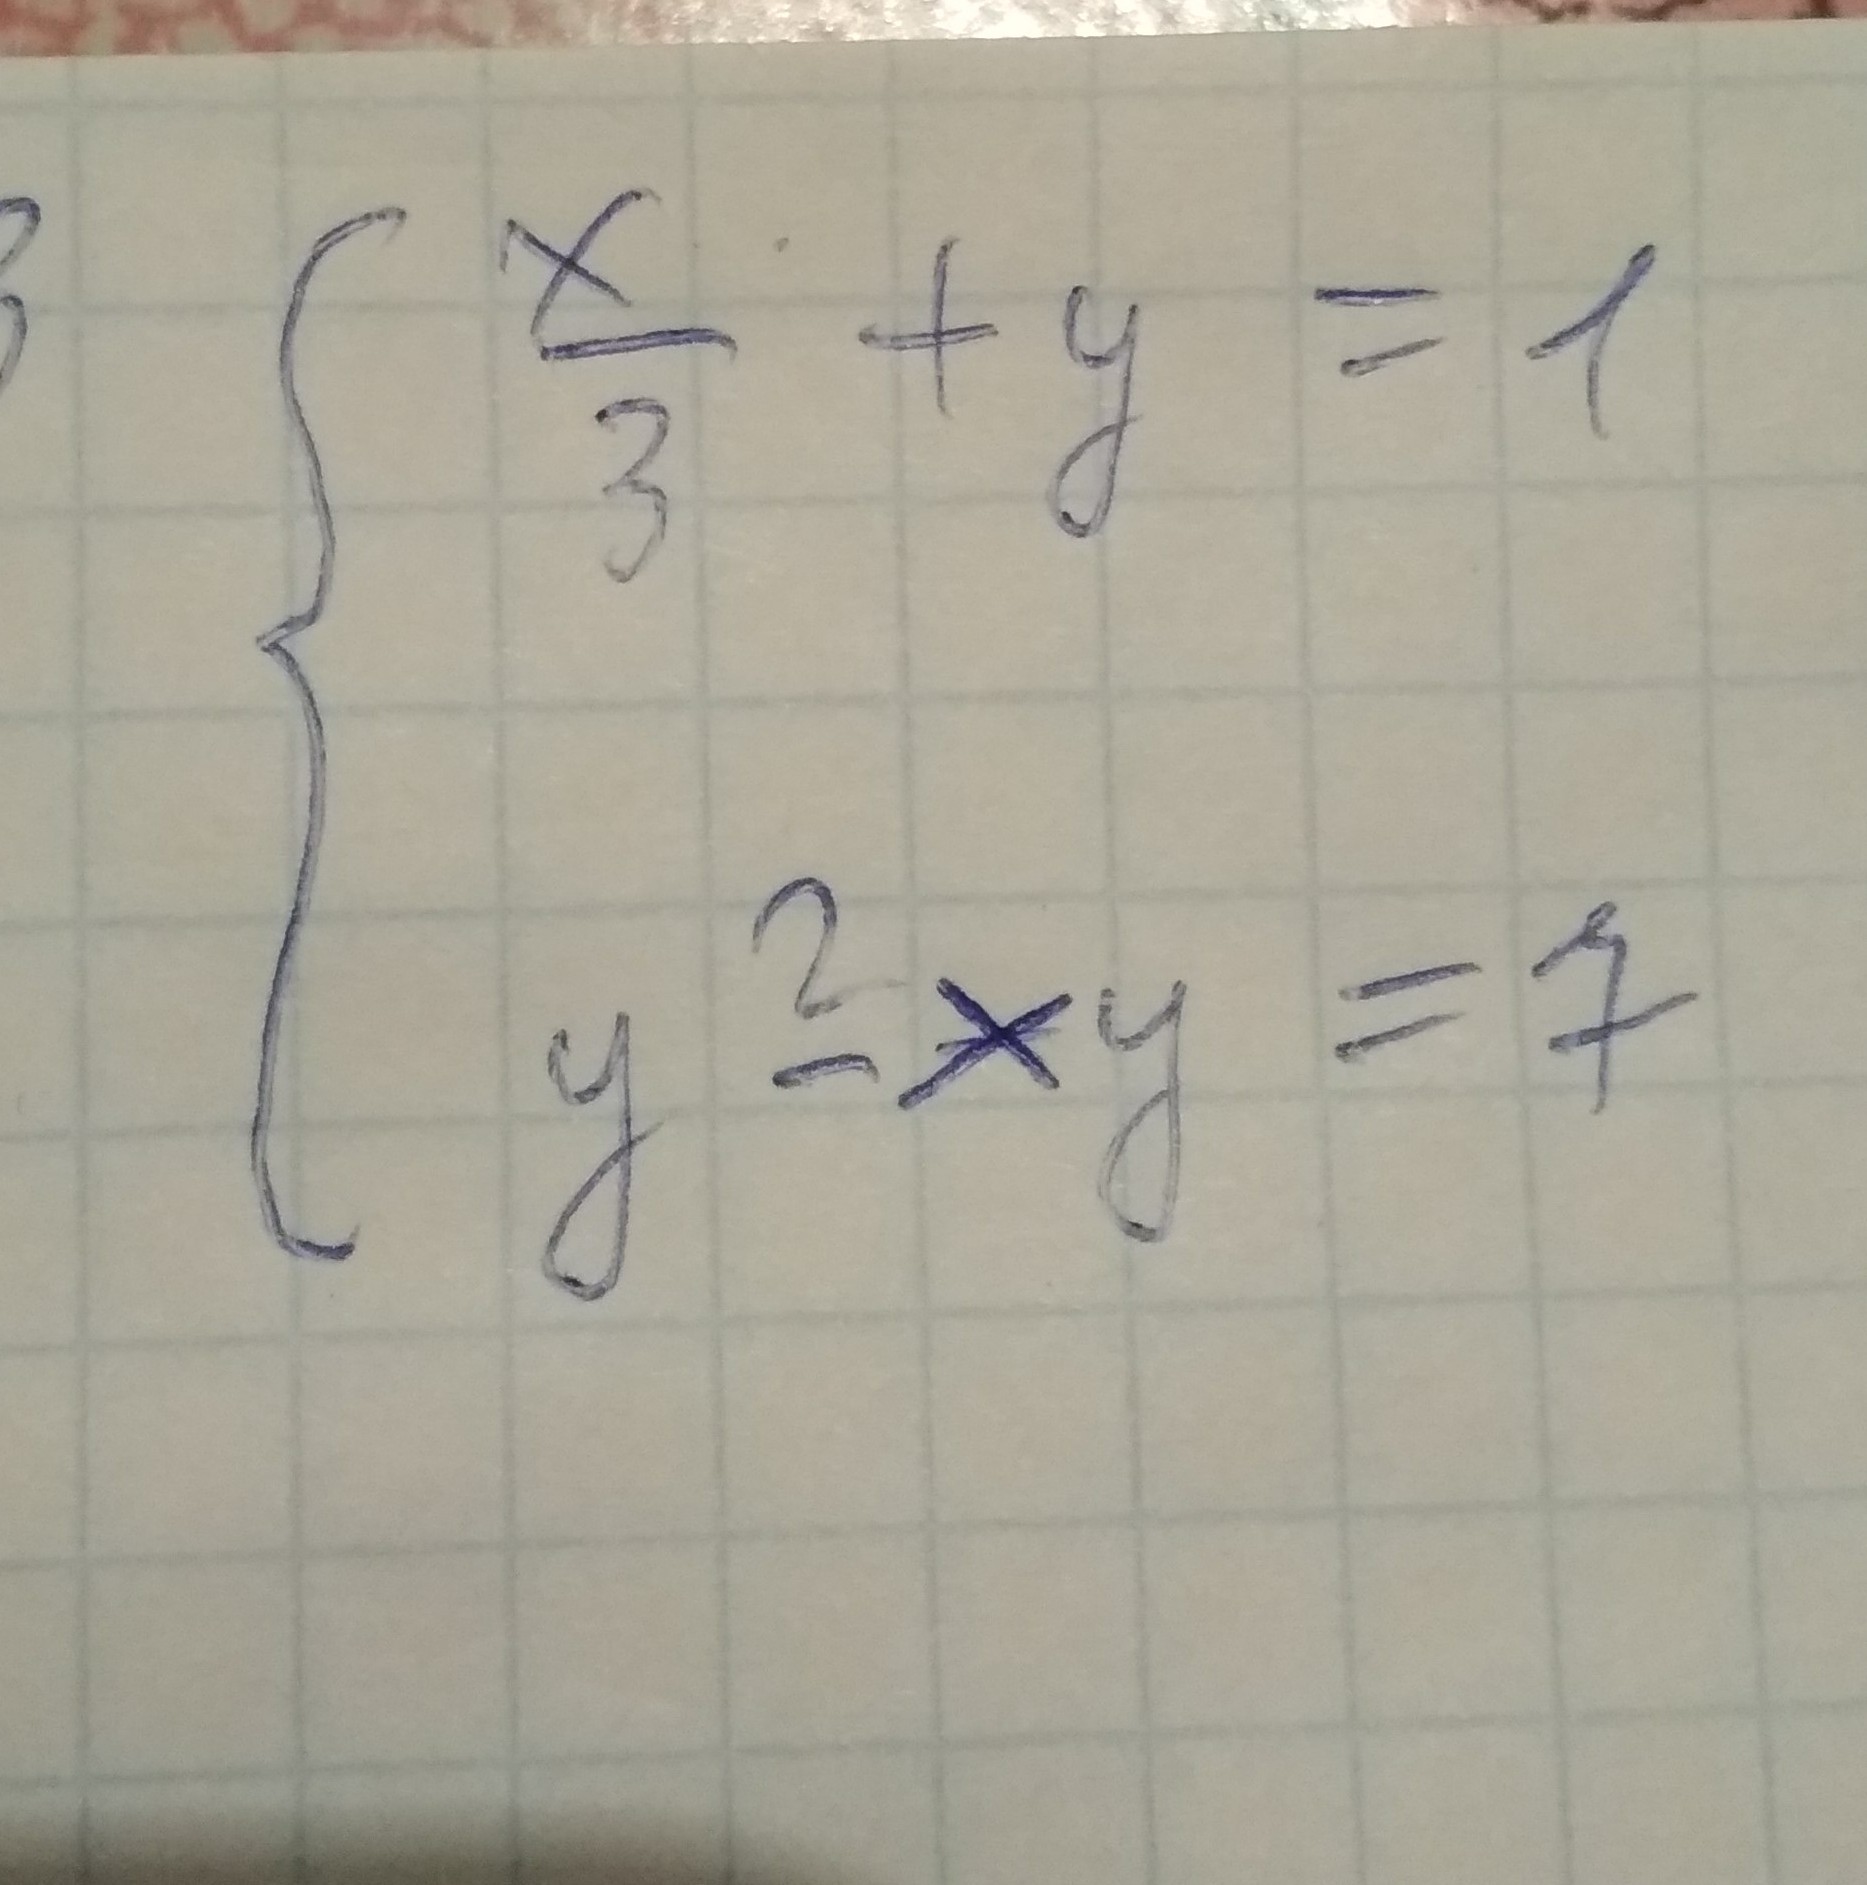 x/3 + y = 1
y² - xy = 7